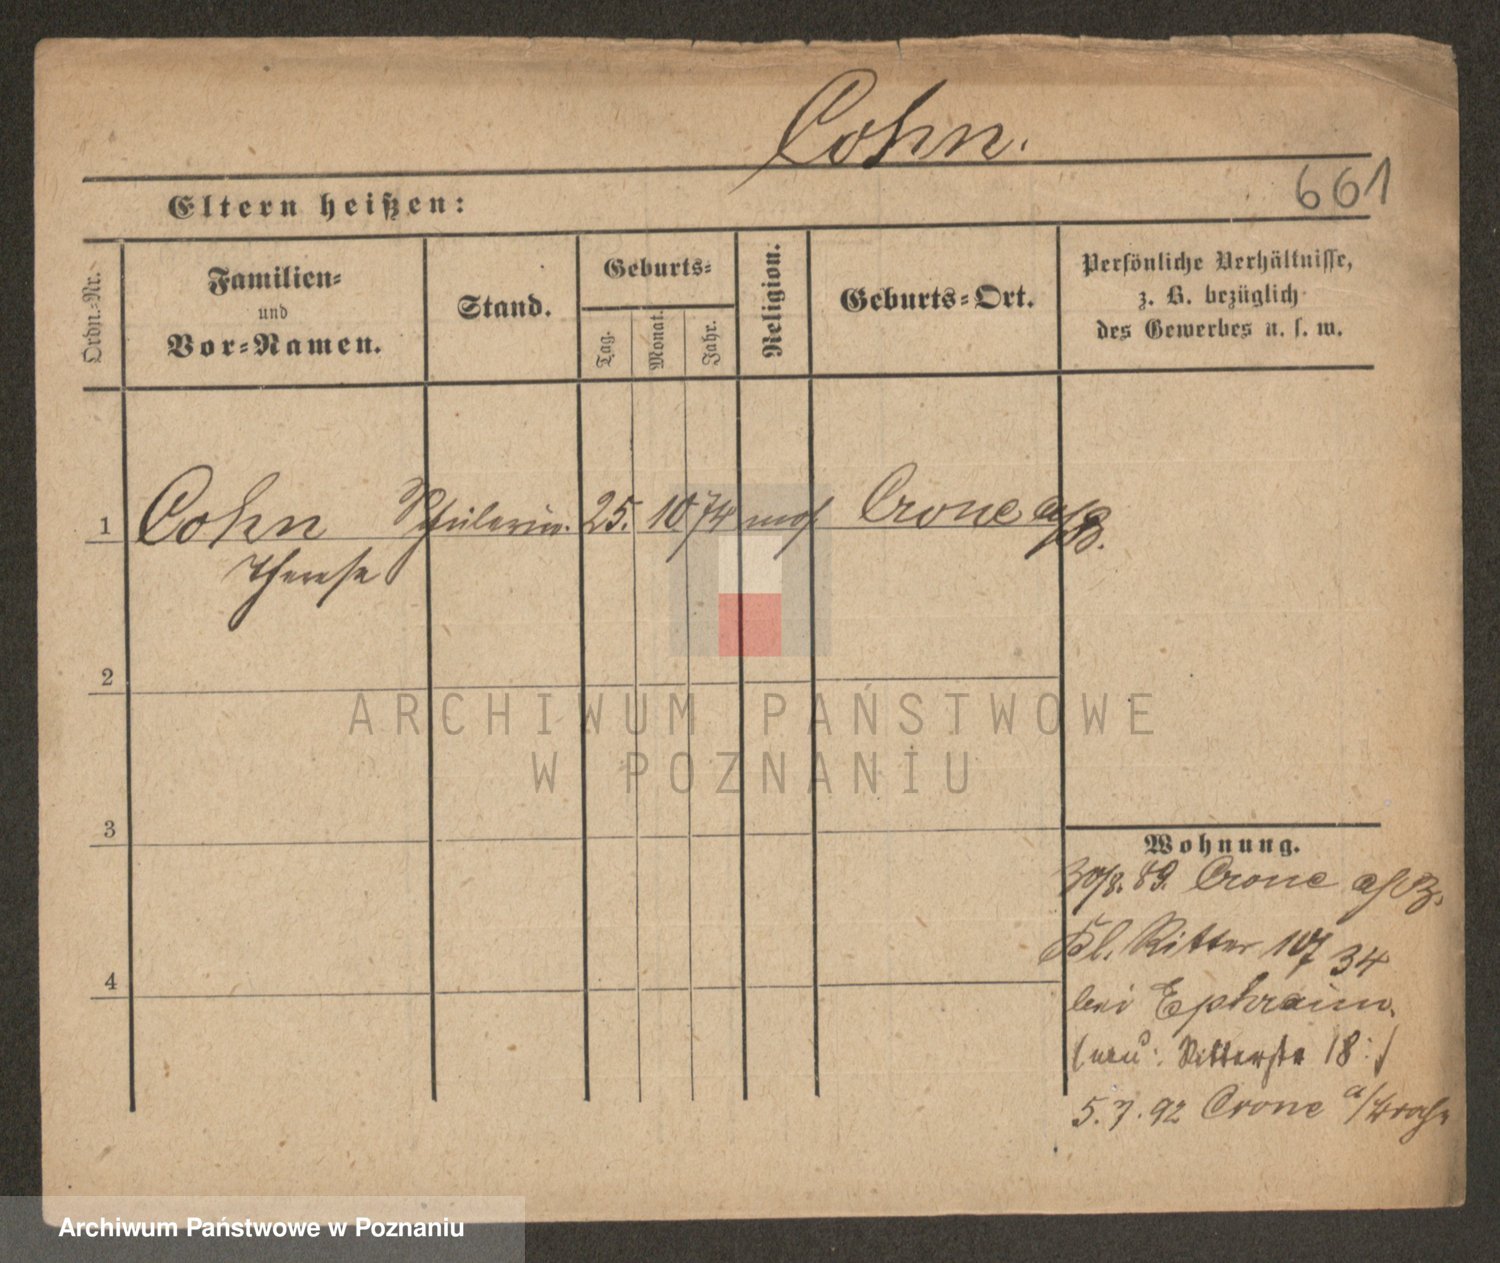 Cohn.
661
Eltern heißen:
Ordn.-Nr.
Familien-
und
Vor-Namen.
Stand.
Geburts-
Tag.
Monat.
Jahr.
Religion.
Geburts-Ort.
Persönliche Verhältnisse,
z. B. bezüglich
des Gewerbes u. s. w.
1 Cohn Schülerin. 25. 10 74 mos. Crone a/B.
Therese
2
ARCHIWUM PAŃSTWOWE
W POZNANIU
3
Wohnung.
30/8. 89. Crone a/B.
Kl. Ritter 107 34
4
bei Ephraim.
(neu: Ritterstr 18:)
5. 7. 92 Crone a/Brahe
Archiwum Państwowe w Poznaniu